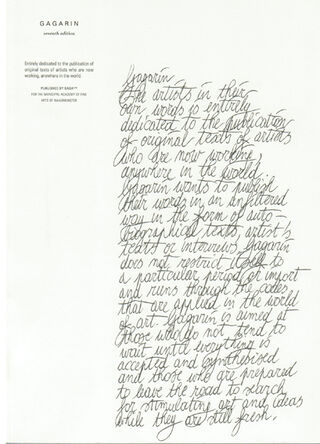 GAGARIN
seventh edition
Entirely dedicated to the publication of
original texts of artists who are now
working, anywhere in the world
PUBLISHED BY GAGA
FOR THE MUNICIPAL ACADEMY OF FINE
ARTS OF WAASMUNSTER
Gagarin
the artists in their
own words is entirely
dedicated to the publication
of original texts of artists
who are now working
anywhere in the world.
Gagarin wants to publish
their words in an unfiltered
way in the form of auto-
biographical texts, artist's
texts or interviews. Gagarin
does not restrict itself to
a particular period or import
and runs through the codes
that are applied in the world
of art. Gagarin is aimed at
those who do not tend to
wait until everything is
accepted and synthesised
and those who are prepared
to leave the road to search
for stimulating art and ideas
while they are still fresh.